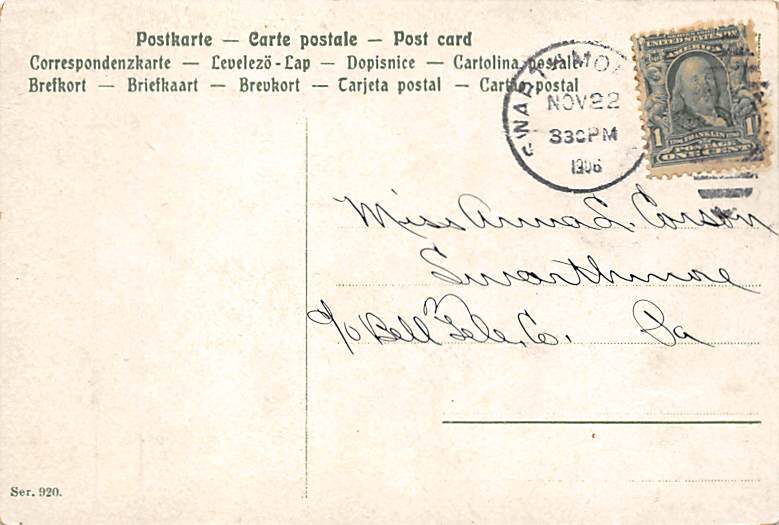 Postkarte — Carte postale — Post card
Correspondenzkarte — Levelező-Lap — Dopisnice — Cartolina postale
Brefkort — Briefkaart — Brevkort — Tarjeta postal — Cartão postal
SWARTHMORE
NOV 22
330PM
1906
UNITED STATES OF
AMERICA
1 FRANKLIN 1
POSTAGE
ONE CENT
Miss Anna L. Corson
Swarthmore
c/o Bell Tele. Co. Pa
Ser. 920.